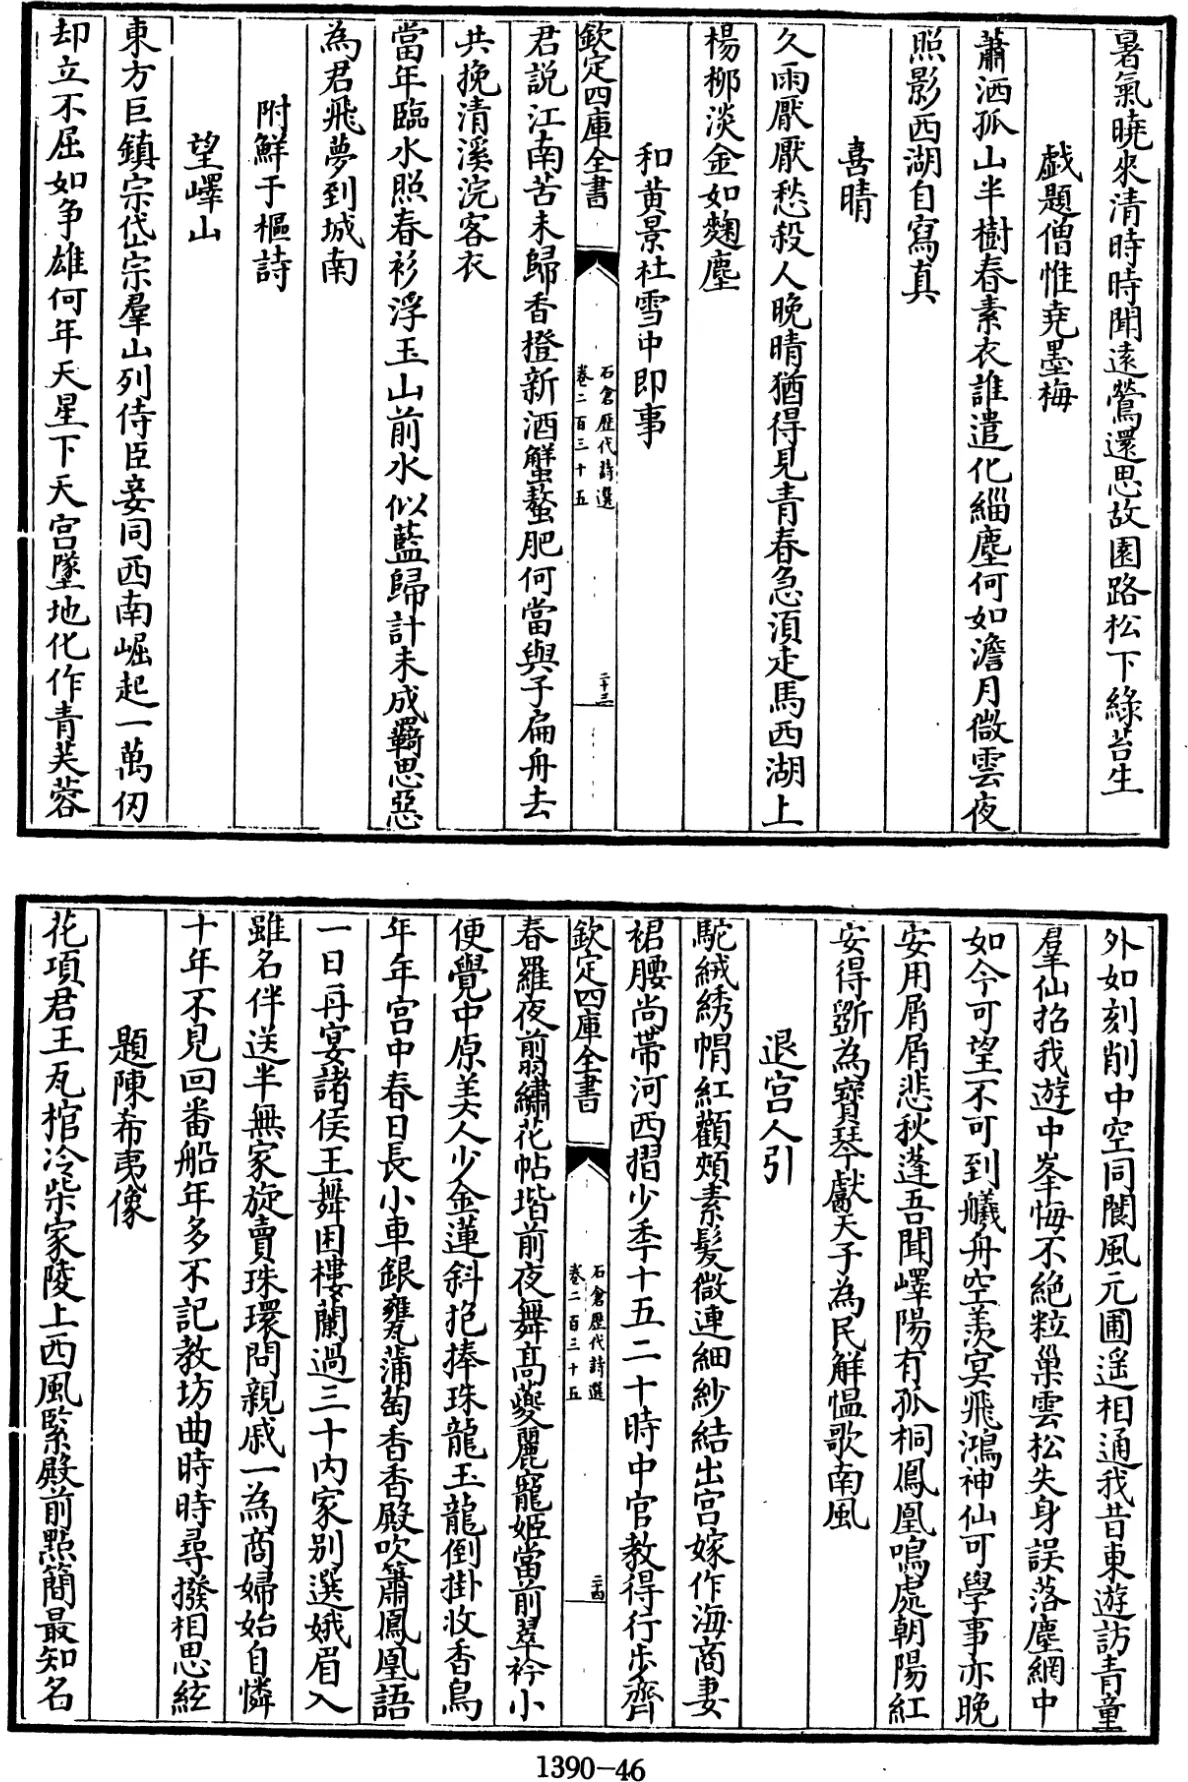 暑氣曉來清時時聞遠鶯還思故園路松下緑苔生
戯題僧惟堯墨梅
蕭洒孤山半樹春素衣誰遣化緇塵何如澹月微雲夜
照影西湖自寫真
喜晴
久雨厭厭愁殺人晚晴猶得見青春急湏走馬西湖上
楊栁淡金如麴塵
和黄景社雪中即事
欽定四庫全書
石倉歷代詩選
卷二百三十五
二十三
君説江南苦未歸香橙新酒蟹螯肥何當與子扁舟去
共挽清溪浣客衣
當年臨水照春衫浮玉山前水似藍歸計未成羇思惡
為君飛夢到城南
附鮮于樞詩
望嶧山
東方巨鎮宗岱宗羣山列侍臣妾同西南崛起一萬仞
却立不屈如争雄何年天星下天宫墜地化作青芙蓉
外如刻削中空同閬風元圃遥相通我昔東遊訪青童
羣仙招我遊中峯悔不絶粒巢雲松失身誤落塵網中
如今可望不可到艤舟空羡冥飛鴻神仙可學事亦晚
安用屑屑悲秋蓬吾聞嶧陽有孤桐鳳凰鳴處朝陽紅
安得斵為寳琴獻天子為民解愠歌南風
退宫人引
駝絨綉帽紅顴頰素髪微連細紗結出宫嫁作海商妻
裙腰尚帶河西摺少年十五二十時中官教得行步齊
欽定四庫全書
石倉歷代詩選
卷二百三十五
二十四
春羅夜剪繡花帖堦前夜舞髙夔麗寵姬當前翠衿小
便覺中原美人少金蓮斜抱捧珠龍玉龍倒掛收香鳥
年年宫中春日長小車銀甕蒲萄香香殿吹簫鳳凰語
一日再宴諸侯王舞困樓蘭過三十内家别選娥眉入
雖名伴送半無家旋賣珠環問親戚一為商婦始自憐
十年不見回番船年多不記教坊曲時時尋撥相思絃
題陳希夷像
花項君王瓦棺冷柴家陵上西風緊殿前點簡最知名
1390-46